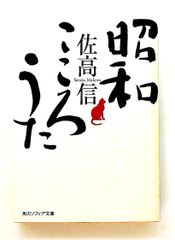 昭和
こころ
うた
佐高信
Sataka Makoto
角川ソフィア文庫